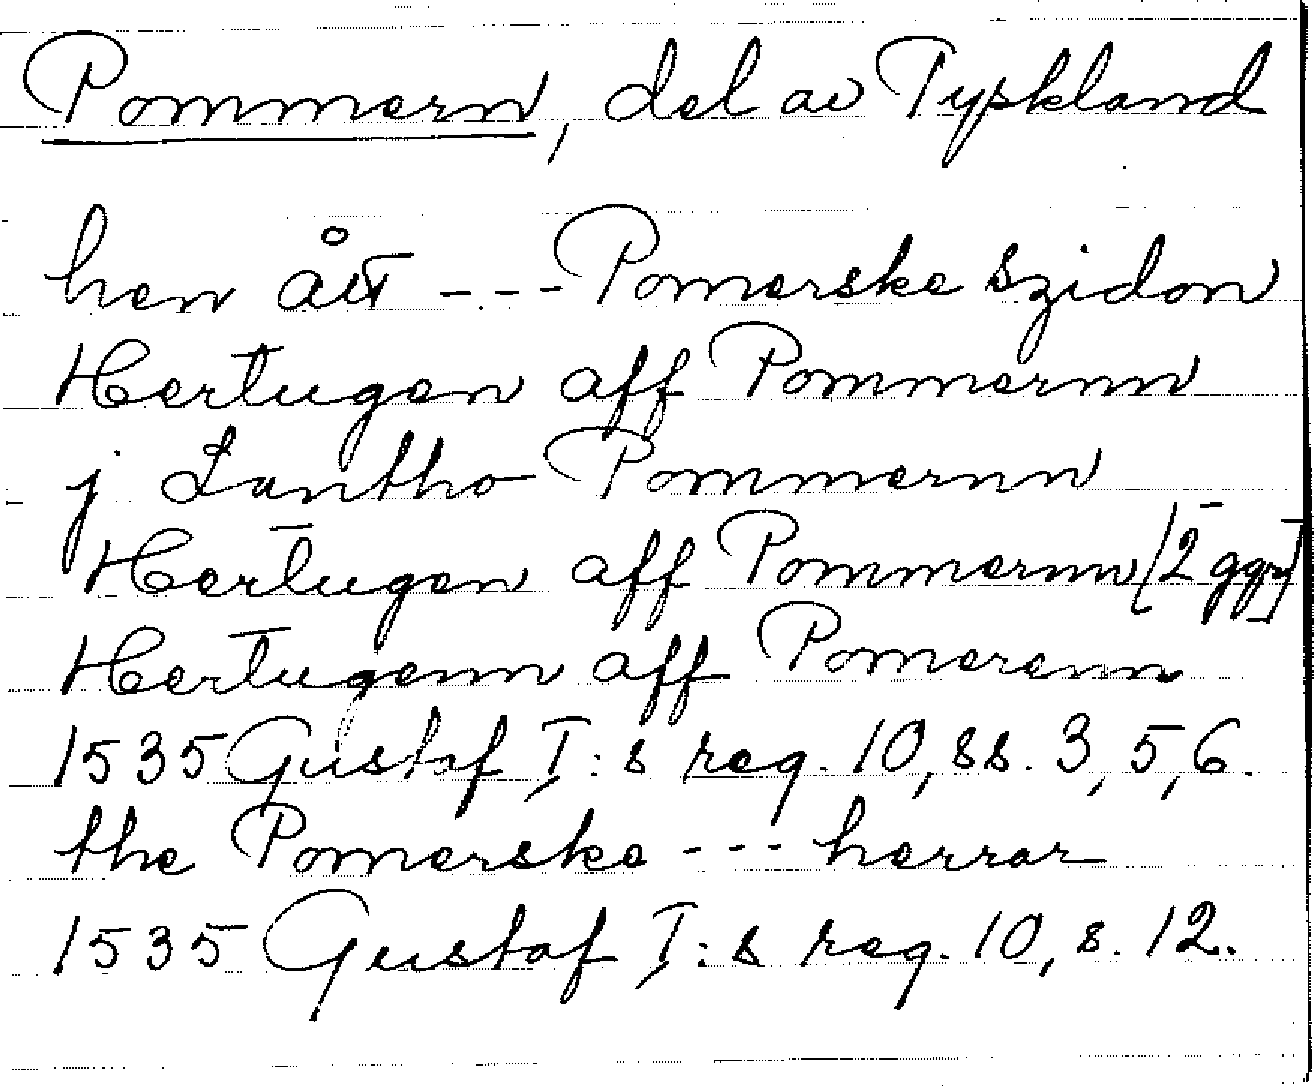 Pommern, del av Tyskland
hen ått --- Pomerske szidon
Hertugen aff Pommernn
j Lantho Pommernn
Hertugen aff Pommernn [2 ggr]
Hertugenn aff Pomerenn
1535 Gustaf I:s reg. 10, ss. 3, 5, 6.
the Pomerske --- herrar
1535 Gustaf I:s reg. 10, s. 12.